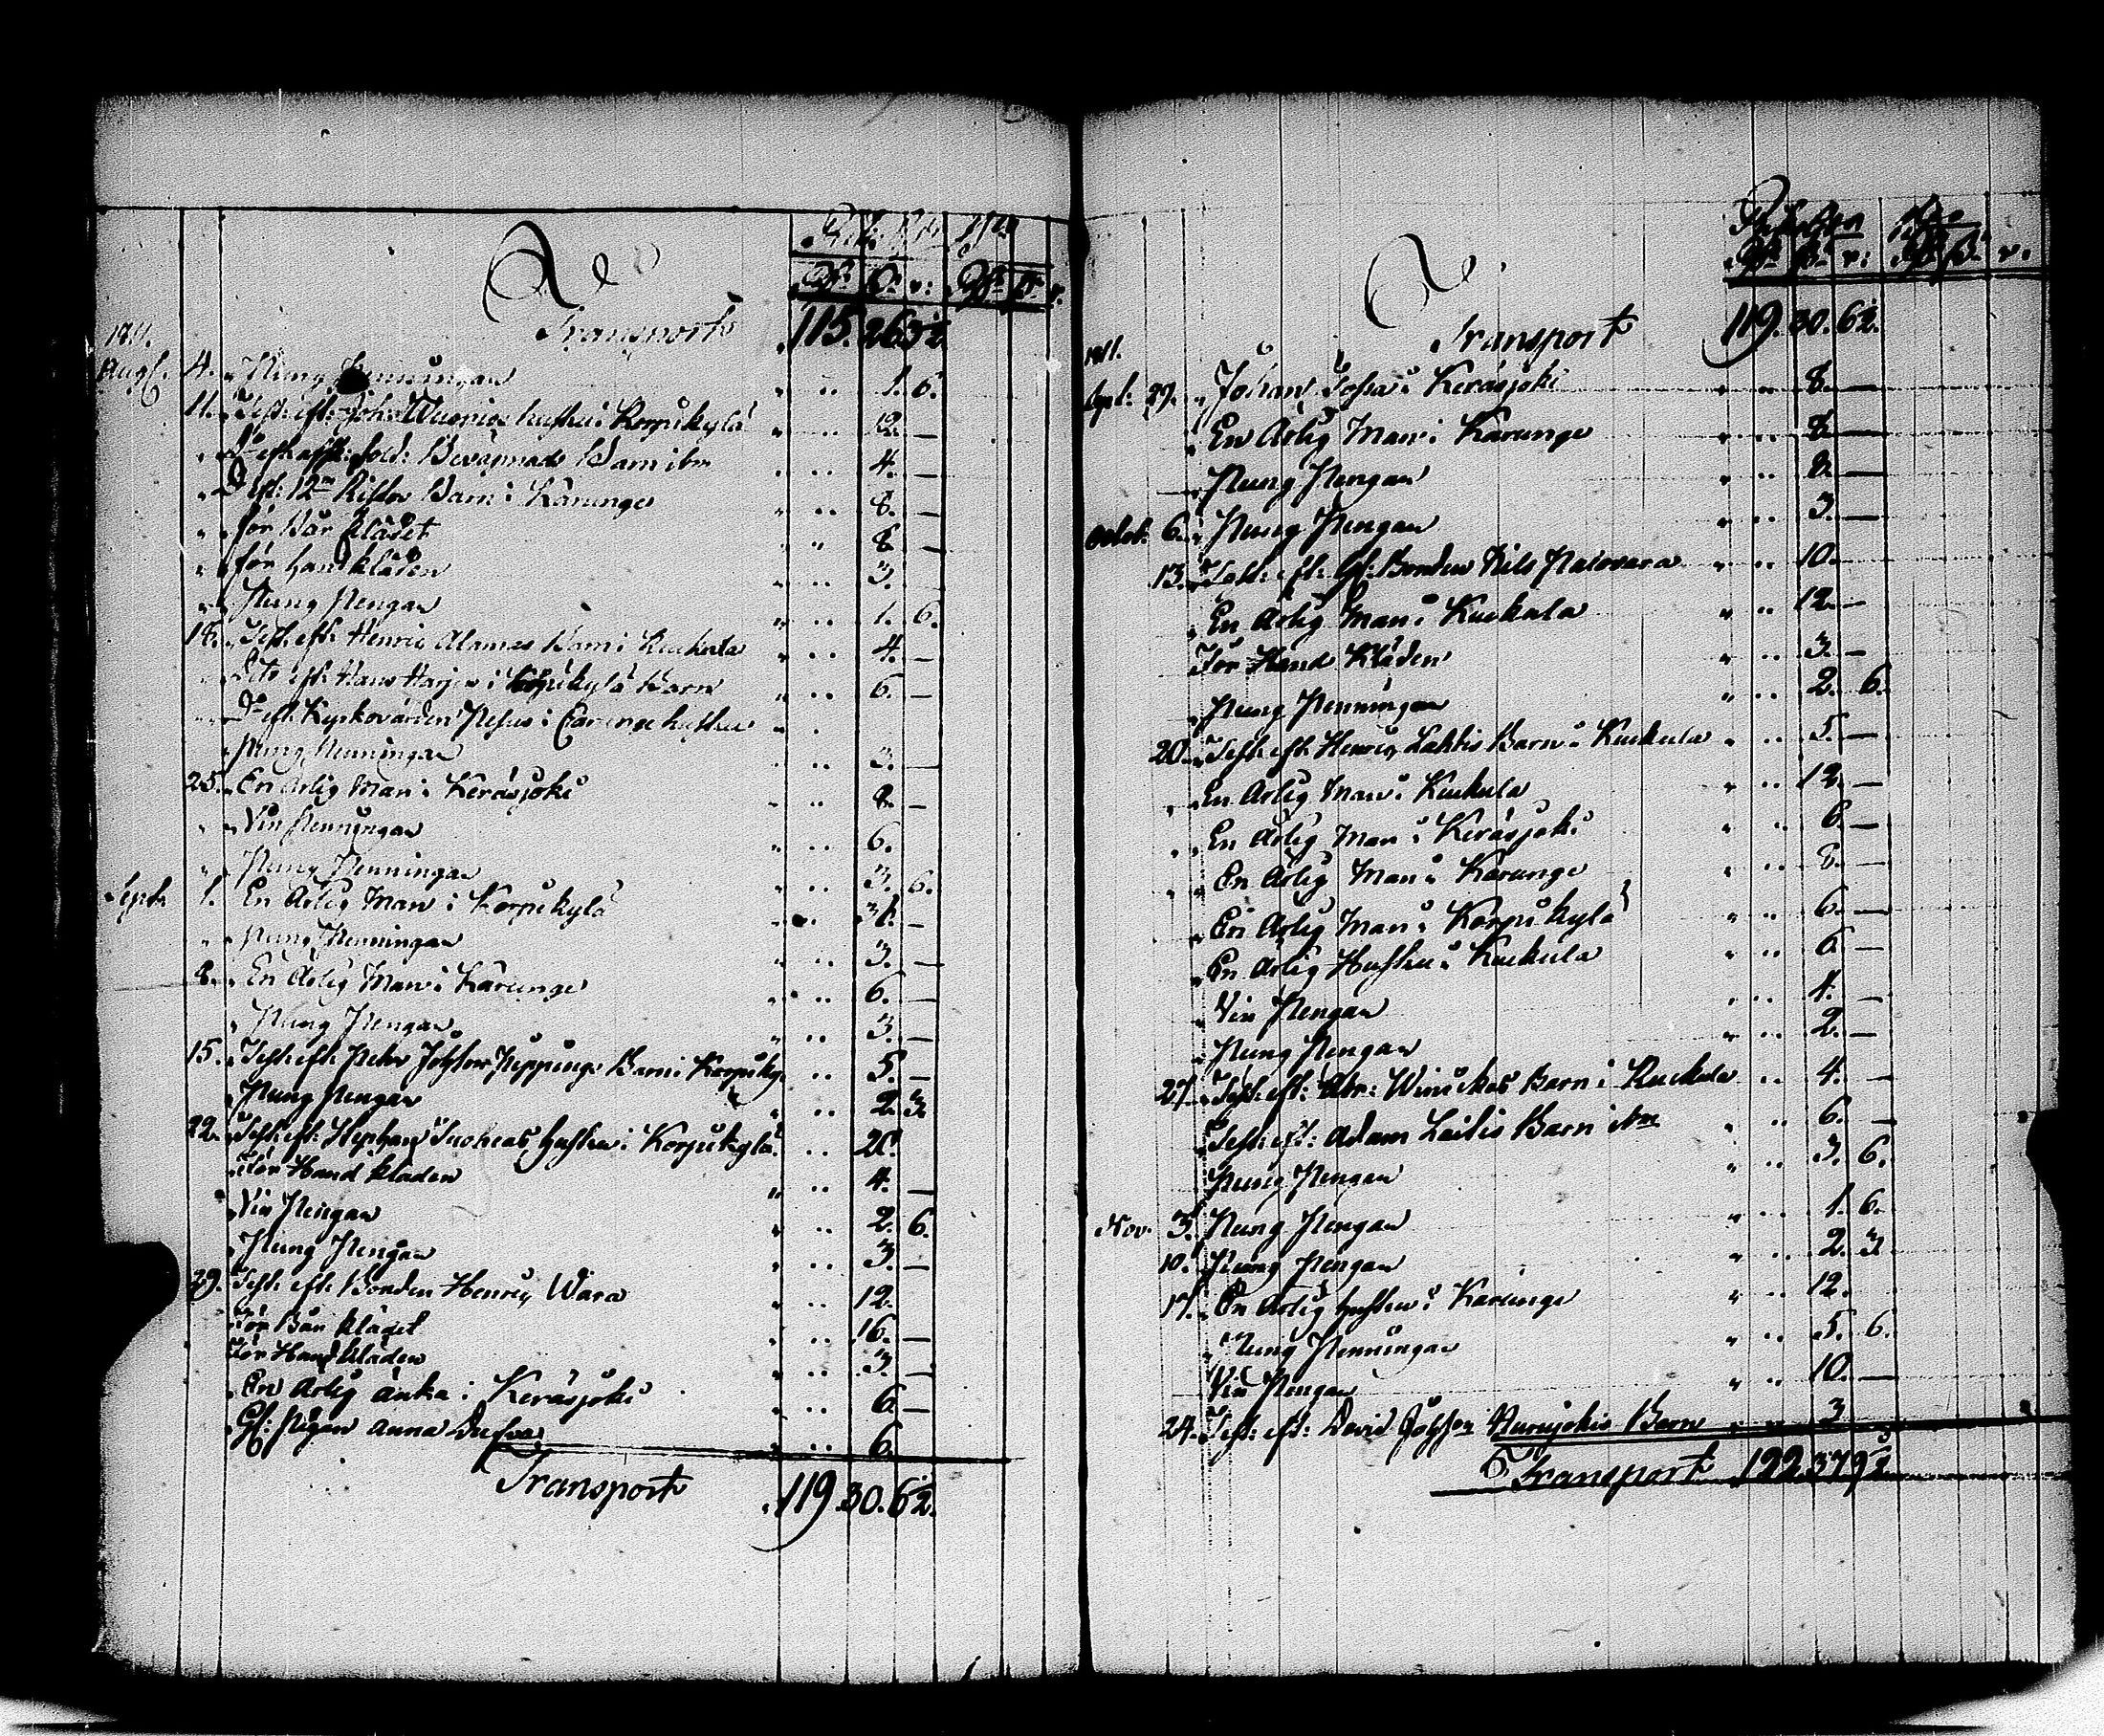 Transport 115. 26.
1811.
Augt. 4. Pung Penningar 1. 6.
11. Test: eft: Joh: Wuonios hustru i Korpikylä 12. —
Do eft: afsk: Sold: Bevärnads Barn ibm 4. —
D eft: Ristos Barn i Karungi 8. —
för Bår klädet 8. —
för handkläden 3. —
Pung Pengar 1. 6.
18. Test: eft: Henric Alamas Barn i Kuckula 4. —
Dito eft: Hans Harjus i Korpikylä Barn 6. —
Do eft: Kyrkovärden i Carunge hustru
Pung Penningar 3. —
25. En Ärlig Man i Keräsjoki 8. —
Vin Penningar 6.
Pung Penningar 3. 6.
Septr 1. En Ärlig Man i Korpikylä
Pung Penningar 3. —
8. En Ärlig Man i Karungi 6. —
Pung Pengar 3. —
15. Test: eft: Petter Johsson Barn i Korpiky 5. —
Pung Pengar 2. 3.
22. Test: eft: Stephan hustru i Korpikylä
För Hand kläden 4. —
Vin Pengar 2. 6.
Pung Pengar 3. —
29. Test: eft: Bonden Henric Wara 12. —
För Bår klädet 16. —
För Hand kläden 3. —
En Ärlig änka i Keräsjoki 6. —
Gl: Pigan Anna 6.
Transport 119. 30. 6
Transport 119. 30. 6
1811.
29. Johan i Keräsjoki 8. —
En Ärlig Man i Karunge 8. —
Pung Pengar —
Octob: 6. Pung Pengar 3. —
13. Test: eft: Gl: Bonden Nils Palovara 10. —
En Ärlig Man i Kuckula 12. —
För Hand Kläden 3. —
Pung Penningar 2. 6.
20. Test: eft: Henric Lahtis Barn i Kuckula 5. —
En Ärlig Man i Kuckula 12. —
En Ärlig Man i Keräsjoki 6. —
En Ärlig Man i Karunge 8. —
En Ärlig Man i Korpikylä 6. —
En Ärlig Hustru i Kuckula 6. —
Vin Pengar 4. —
Pung Pengar 2. —
27. Test: eft: Abr: Winickas Barn i Kuckula 4. —
Test: eft: Adam Laitis Barn ibm 6. —
Pung Pengar 3. 6.
Nov. 3. Pung Pengar 1. 6.
10. Pung Pengar 2. 3.
17. En Ärlig hustru i Karunge 12.
Pung Penningar 5. 6.
Vin Pengar 10. —
24. Test: eft: David Johsson Barn 3
Transport 122. 37. 9